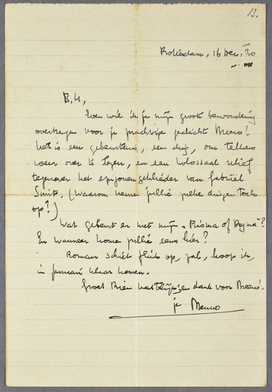 13.
Rotterdam, 16 Dec. '30
B. H.,
Even wil ik je mijn groote bewondering
overbrengen voor je prachtige gedicht Memo!
Het is een gebeurtenis, een ding, om telkens
weer over te lezen, en een kolossaal reliëf
tegenover het epigonengeklieder van Gabriël
Smit, (waarom nemen jullie zulke dingen toch
op?)
Wat gebeurt er met mijn "Prisma of Dogma"?
En wanneer komen jullie eens hier?
Roman schiet flink op, zal, hoop ik,
in Januari klaar komen.
Groet Mien hartelijk en dank voor Memo.
je Menno